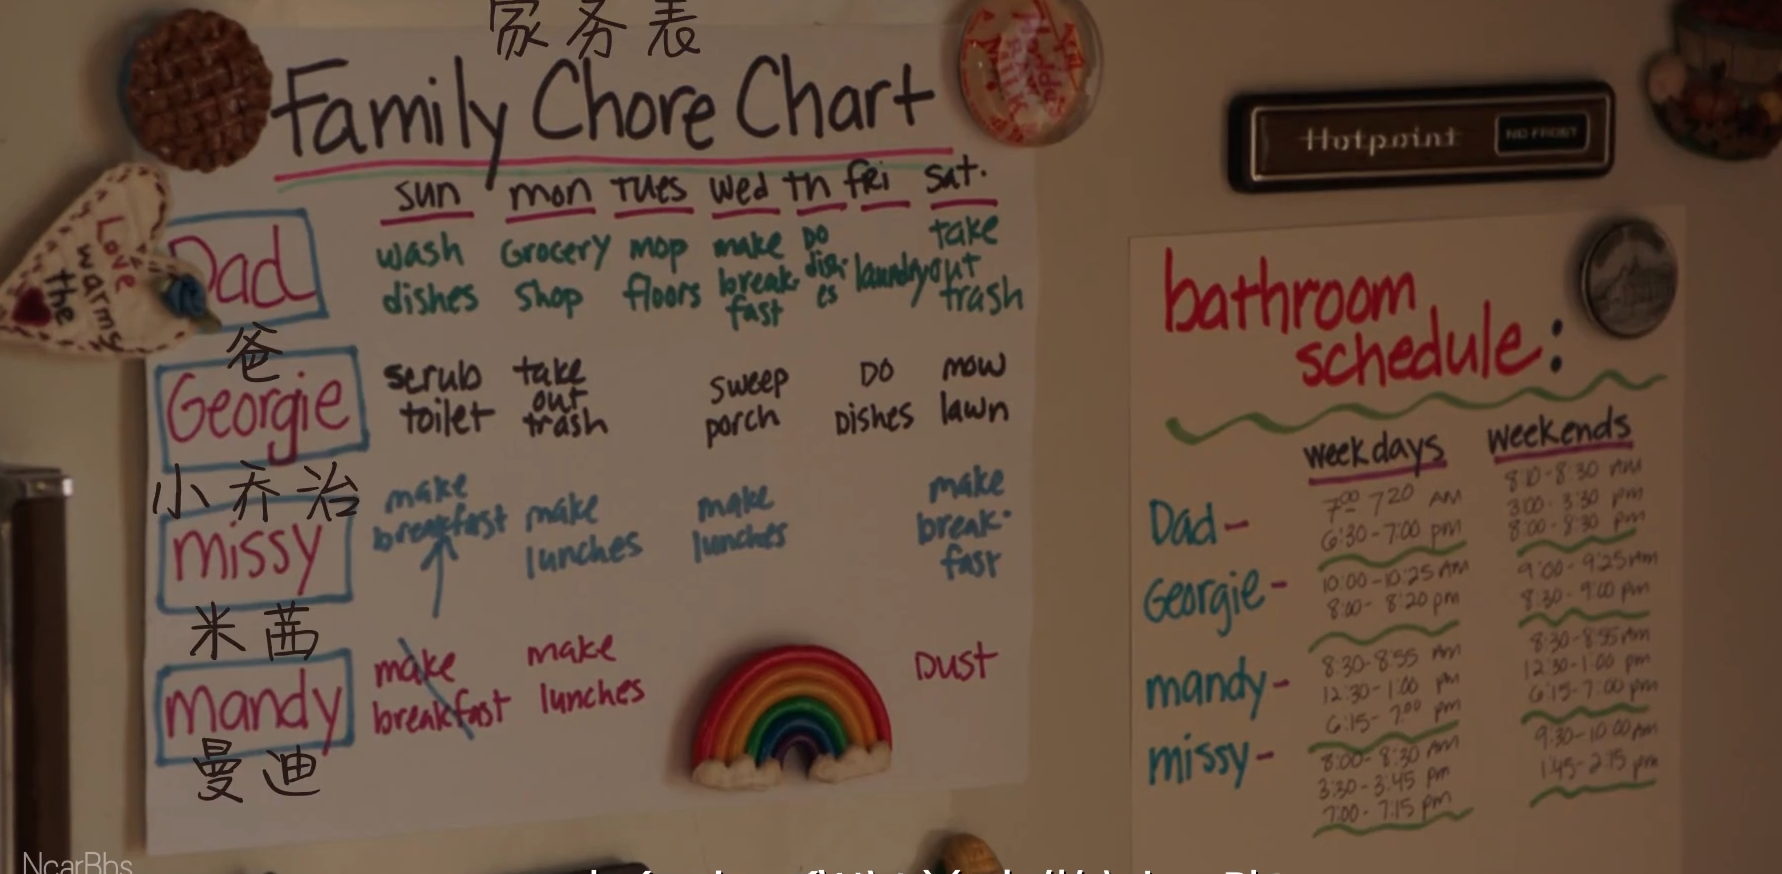 家务表
Family Chore Chart
sun mon Tues Wed Th fri sat.
Dad
爸
wash dishes
Grocery Shop
mop floors
make break-fast
Do dish-es
laundry
take out trash
Georgie
小乔治
scrub toilet
take out trash
sweep porch
DO DisHes
mow lawn
missy
米茜
make breakfast
make lunches
make lunches
make break-fast
mandy
曼迪
make breakfast
make lunches
DUST
Love warms the
Hotpoint
NO FROST
bathroom
schedule:
weekdays weekends
Dad-
7:00 7:20 AM
6:30-7:00 pm
8:10-8:30 AM
3:00-3:30 pm
8:00-8:30 pm
Georgie-
10:00-10:25 AM
8:00-8:20 pm
9:00-9:25 AM
8:30-9:00 pm
mandy-
8:30-8:55 AM
12:30-1:00 pm
6:15-7:00 pm
8:30-8:55 AM
12:30-1:00 pm
6:15-7:00 pm
missy-
8:00-8:30 AM
3:30-3:45 pm
7:00-7:15 pm
9:30-10:00 AM
1:45-2:15 pm
NcarBbs